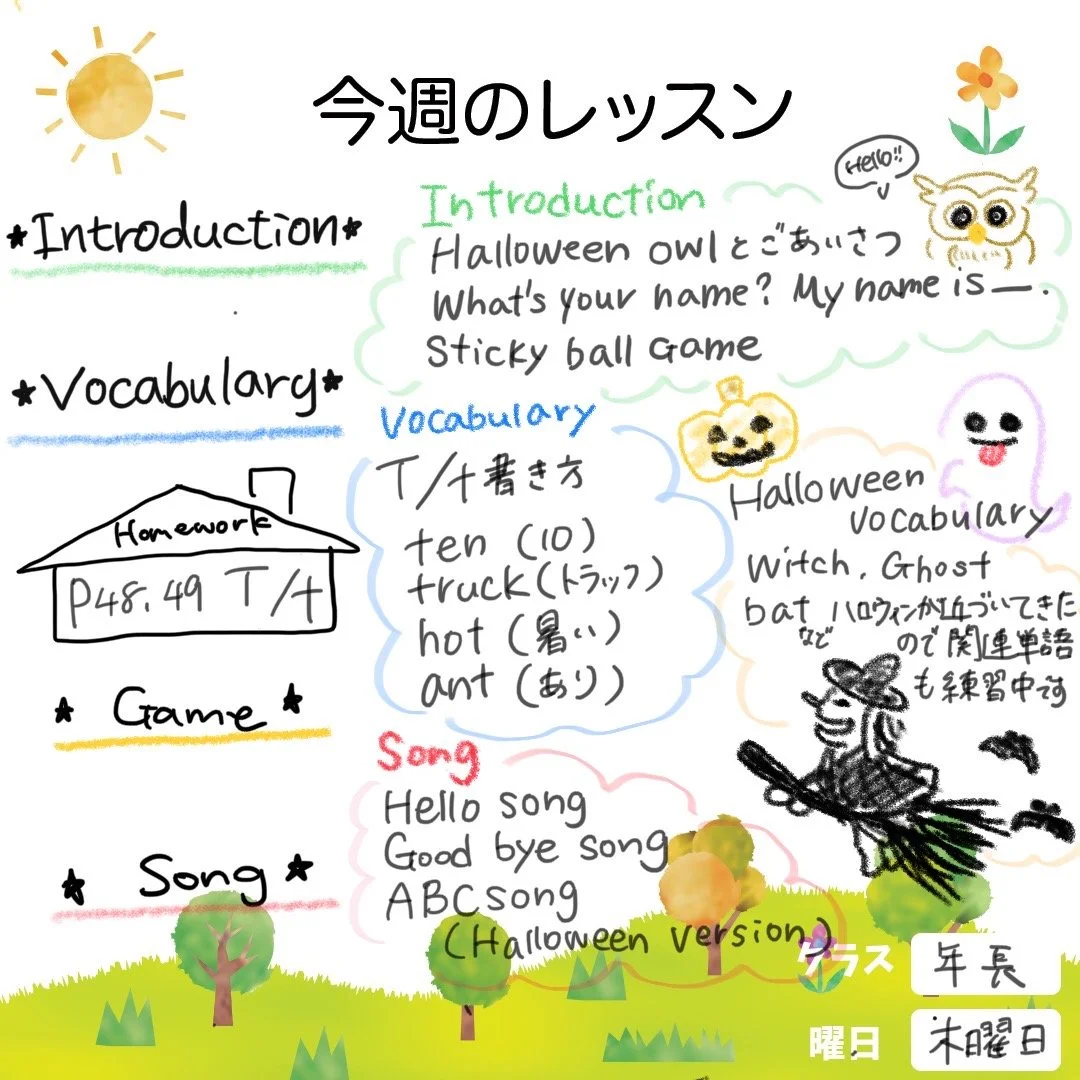 今週のレッスン
Hello!!
*Introduction*
Introduction
Halloween owlとごあいさつ
What's your name? My name is —.
Sticky ball Game
★Vocabulary★
Vocabulary
T/t書き方
ten (10)
truck(トラック)
hot (暑い)
ant (あり)
Homework
P48.49 T/t
Halloween
vocabulary
Witch, Ghost
bat など ハロウィンが近づいてきた
ので関連単語
も練習中です
★ Game ★
Song
Hello song
Good bye song
ABC song
(Halloween version)
★ Song ★
クラス 年長
曜日 木曜日